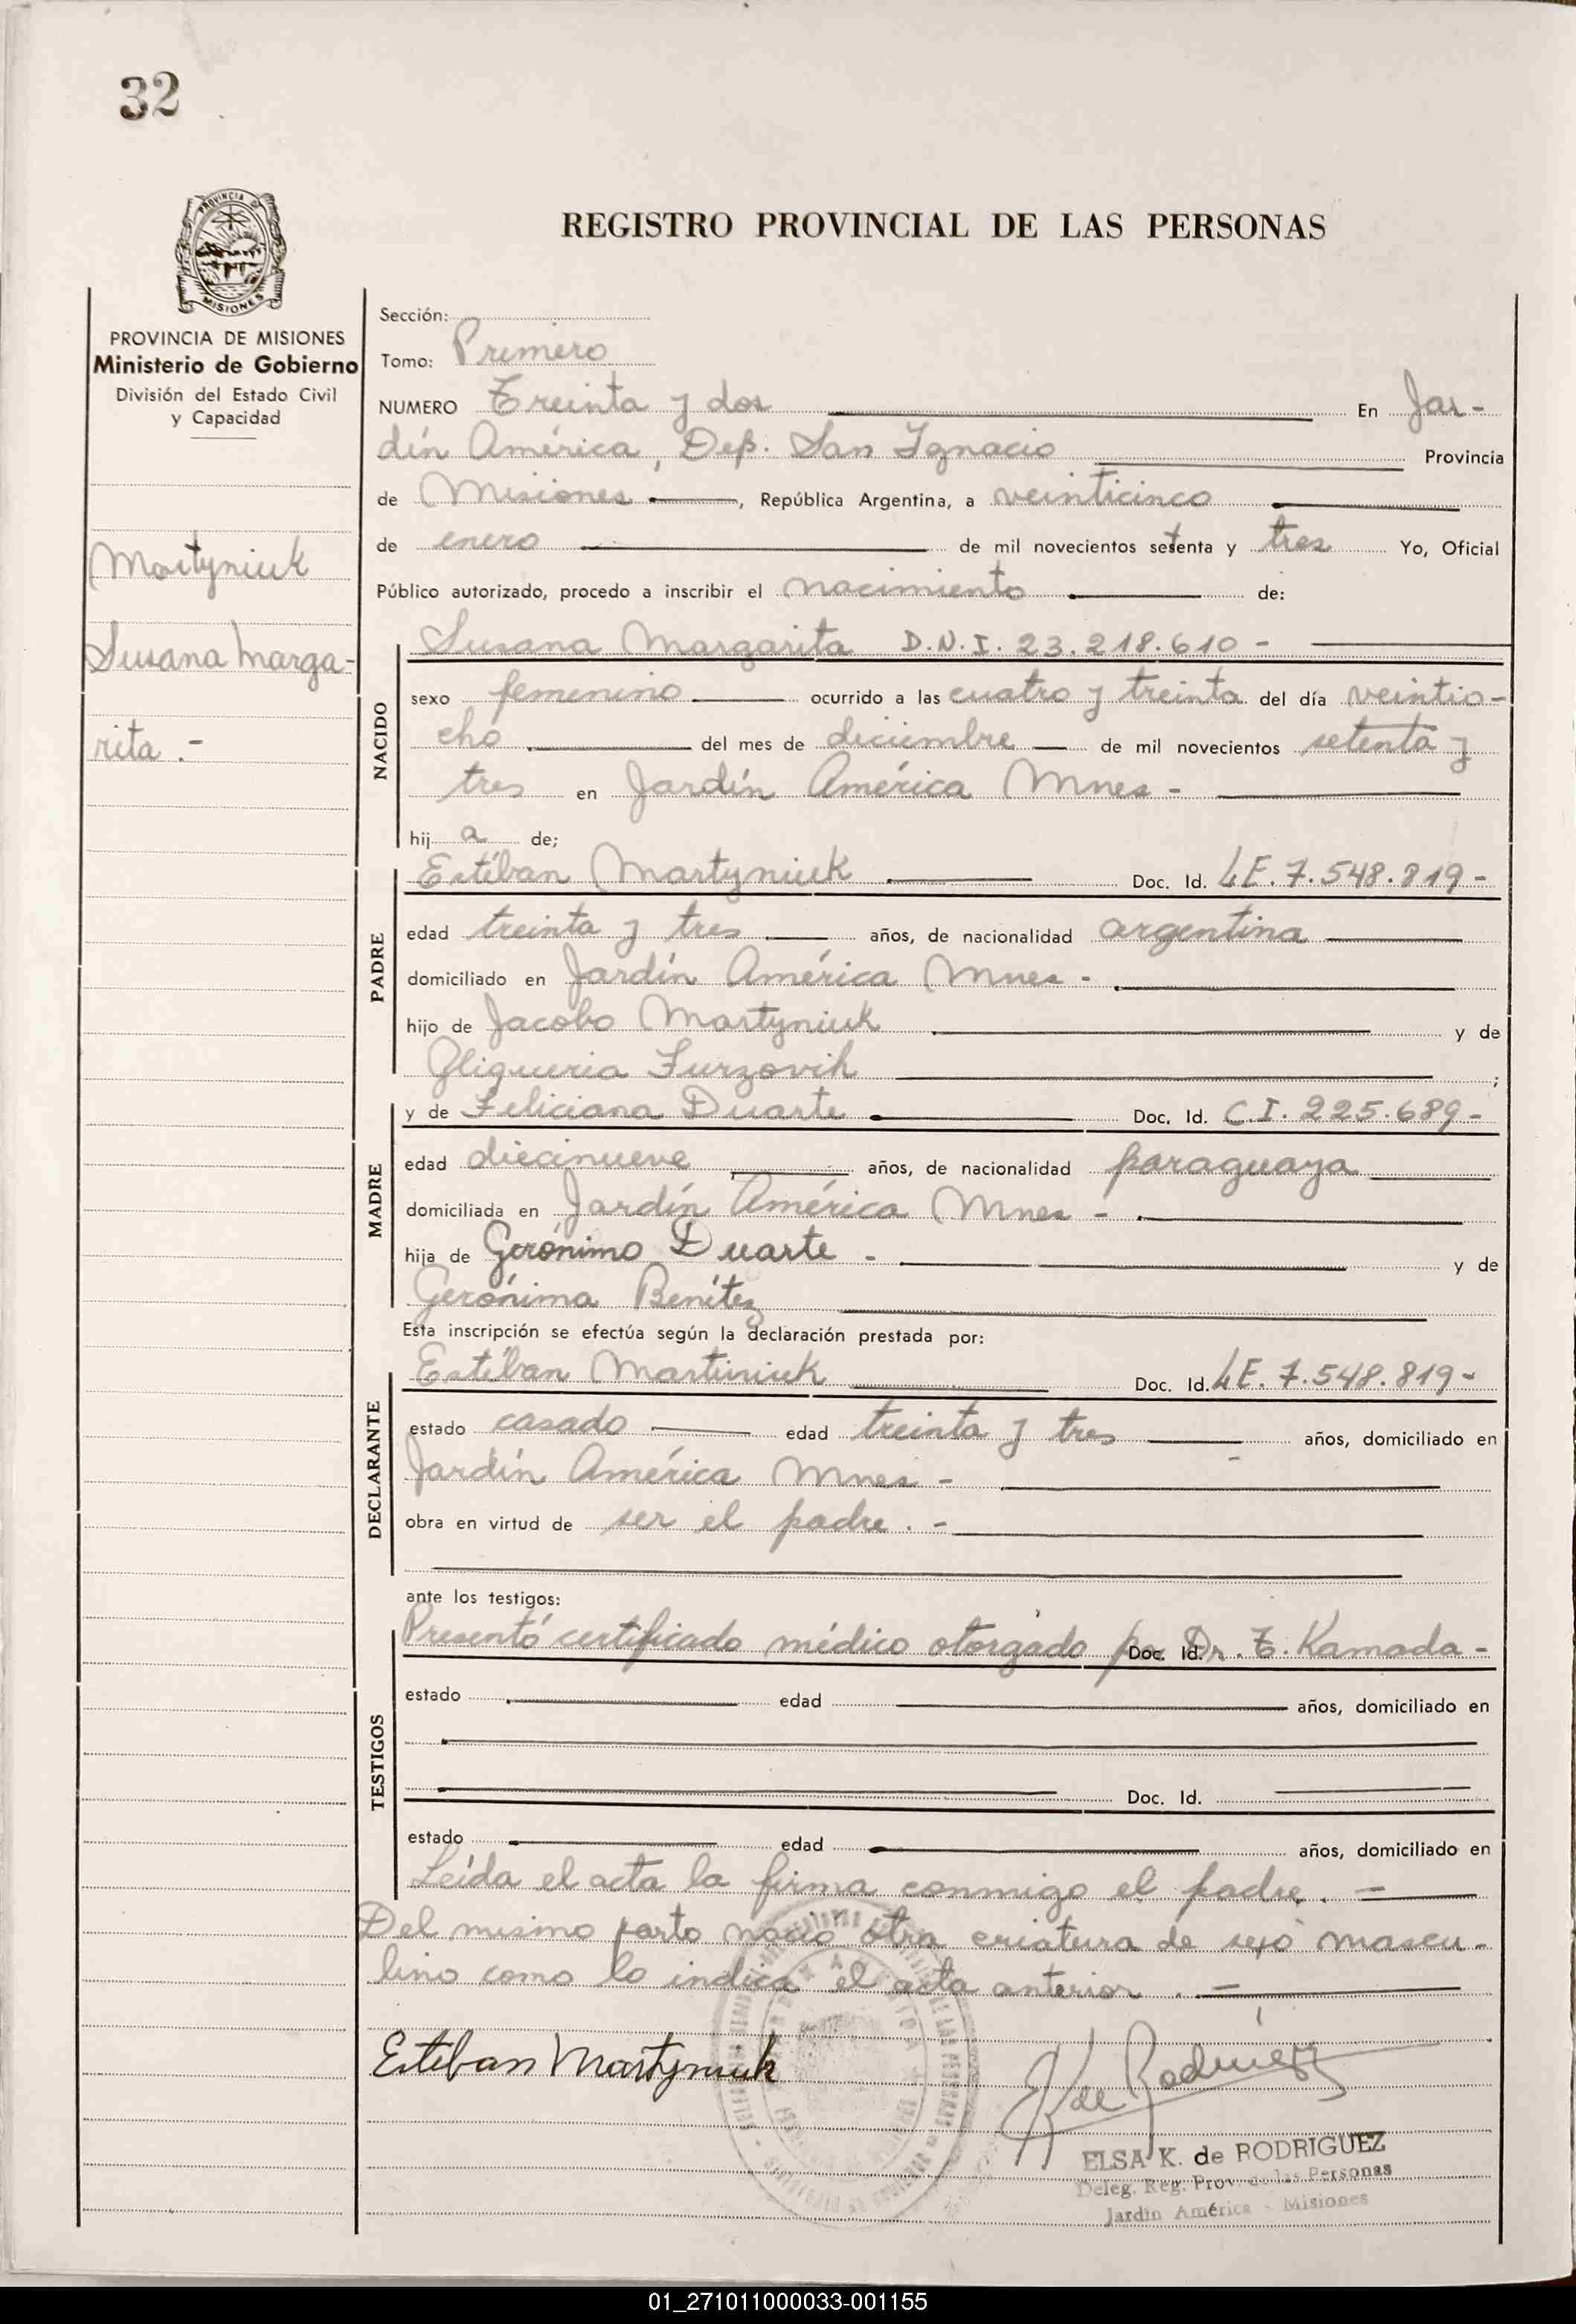 32
PROVINCIA DE
MISIONES
REGISTRO PROVINCIAL DE LAS PERSONAS
PROVINCIA DE MISIONES
Ministerio de Gobierno
División del Estado Civil
y Capacidad
Martyniuk
Susana Marga-
rita.-
Sección:
Tomo: Primero
NUMERO Treinta y dos En Jar-
dín América, Dep. San Ignacio Provincia
de Misiones, República Argentina, a veinticinco
de enero de mil novecientos setenta y tres Yo, Oficial
Público autorizado, procedo a inscribir el nacimiento de:
NACIDO
Susana Margarita D.N.I. 23.218.610 -
sexo femenino ocurrido a las cuatro y treinta del día veintio-
cho del mes de diciembre de mil novecientos setenta y
tres en Jardín América Mnes -
hij a de;
PADRE
Estéban Martyniuk Doc. Id. LE. 7.548.819 -
edad treinta y tres años, de nacionalidad argentina
domiciliado en Jardín América Mnes -
hijo de Jacobo Martyniuk y de
Gliqueria Furzovih ;
MADRE
y de Feliciana Duarte Doc. Id. C.I. 225.689 -
edad diecinueve años, de nacionalidad paraguaya
domiciliada en Jardín América Mnes -
hija de Gerónimo Duarte - y de
Gerónima Benítez
Esta inscripción se efectúa según la declaración prestada por:
DECLARANTE
Estéban Martiniuk Doc. Id. LE. 7.548.819 -
estado casado edad treinta y tres años, domiciliado en
Jardín América Mnes -
obra en virtud de ser el padre. -
ante los testigos:
TESTIGOS
Presentó certificado médico otorgado por Doc. Id. Dr. T. Kamada -
estado edad años, domiciliado en
Doc. Id.
estado edad años, domiciliado en
Leída el acta la firma conmigo el padre. -
Del mismo parto nació otra criatura de sexo mascu-
lino como lo indica el acta anterior. -
Esteban Martyniuk
K de Rodriguez
ELSA K. de RODRIGUEZ
Deleg. Reg. Prov. de las Personas
Jardín América - Misiones
01_271011000033-001155